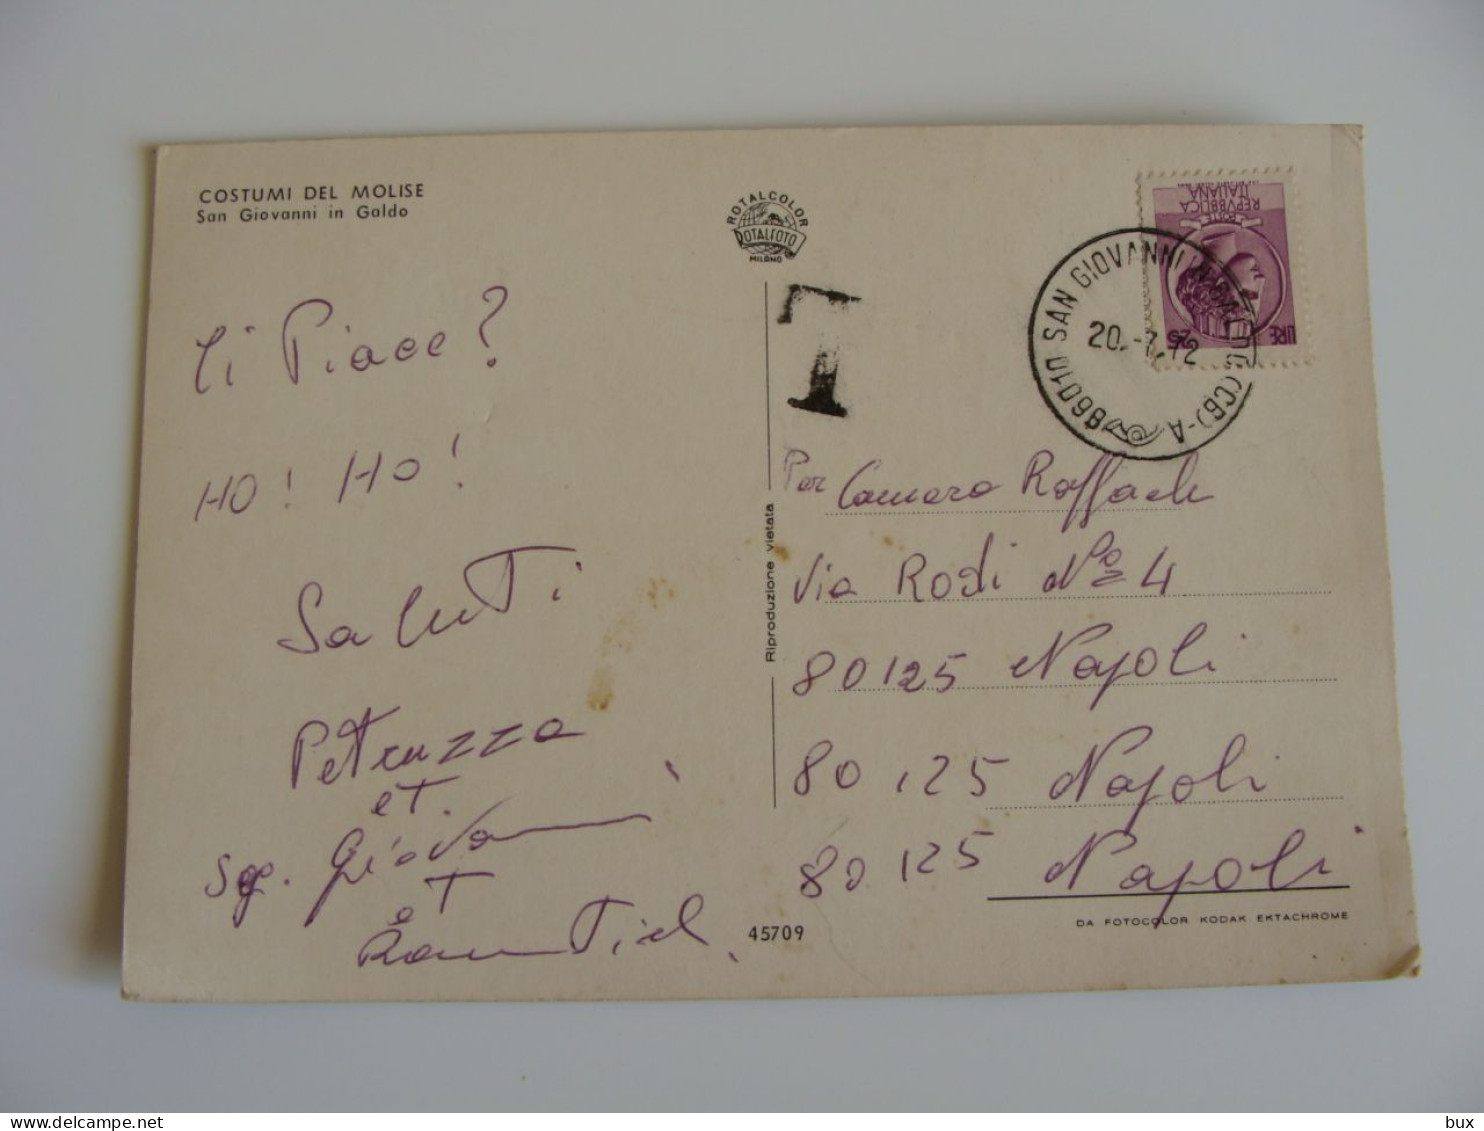 COSTUMI DEL MOLISE
San Giovanni in Galdo
ROTALCOLOR
ROTALFOTO
MILANO
REPVBBLICA
ITALIANA
POSTE
LIRE 25
86010 SAN GIOVANNI IN GALDO (CB) - A
20.-7.72
T
Ti Piace?
HO! HO!
Saluti
Petruzza
et.
Sg. Giovanni
et
Riproduzione vietata
Per Camara Raffaele
Via Rodi Nº 4
80125 Napoli
80125 Napoli
80125 Napoli
45709
DA FOTOCOLOR KODAK EKTACHROME
bux